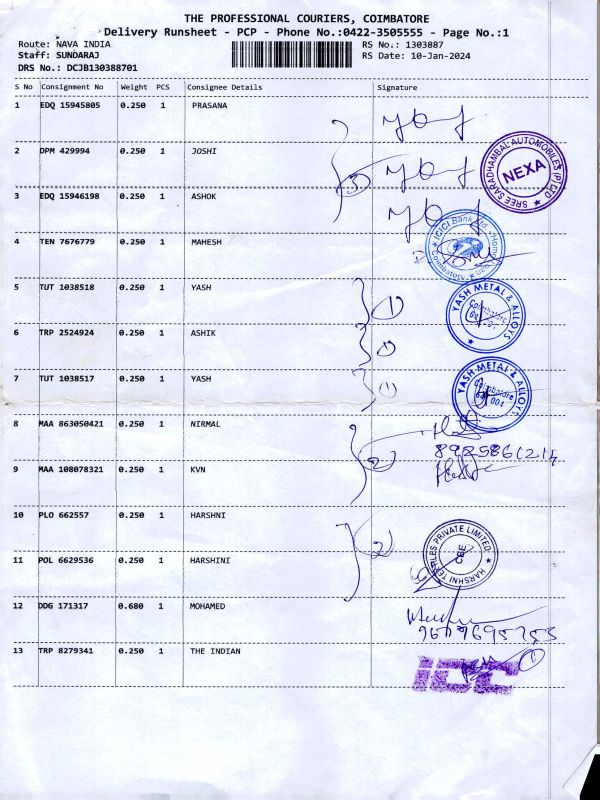 THE PROFESSIONAL COURIERS, COIMBATORE
Delivery Runsheet - PCP - Phone No.:0422-3505555 - Page No.:1
Route: NAVA INDIA RS No.: 1303887
Staff: SUNDARAJ RS Date: 10-Jan-2024
DRS No.: DCJB130388701
S No Consignment No Weight PCS Consignee Details Signature
1 EDQ 15945805 0.250 1 PRASANA
2 DPM 429994 0.250 1 JOSHI
SREE SARADHAMBAL AUTOMOBILES (P) LTD
NEXA
3
3 EDQ 15946198 0.250 1 ASHOK
4 TEN 7676779 0.250 1 MAHESH
ICICI Bank Ltd. Home
Coimbatore
5 TUT 1038518 0.250 1 YASH
1
YASH METAL & ALLOYS
Coimbatore
6 TRP 2524924 0.250 1 ASHIK
1
7 TUT 1038517 0.250 1 YASH
1
YASH METAL & ALLOYS
Coimbatore
8 MAA 863050421 0.250 1 NIRMAL
8925861214
2
9 MAA 108078321 0.250 1 KVN
10 PLO 662557 0.250 1 HARSHNI
2
HARSHNI TEXTILES PRIVATE LIMITED
CBE
11 POL 6629536 0.250 1 HARSHINI
12 DDG 171317 0.680 1 MOHAMED
13 TRP 8279341 0.250 1 THE INDIAN
1